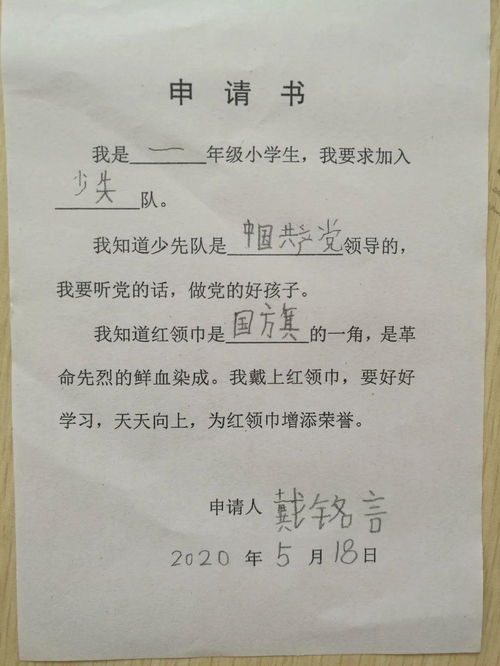 申请书
我是一年级小学生，我要求加入
少先队。
我知道少先队是中国共产党领导的，
我要听党的话，做党的好孩子。
我知道红领巾是国旗的一角，是革
命先烈的鲜血染成。我戴上红领巾，要好好
学习，天天向上，为红领巾增添荣誉。
申请人 戴铭言
2020年5月18日